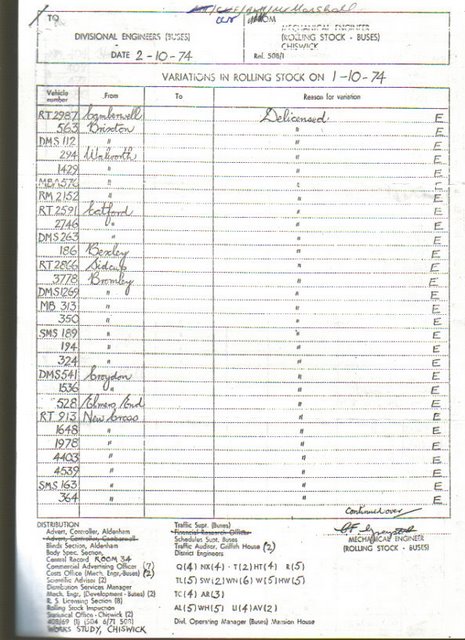 Mr Marshall
TO
FROM
DIVISIONAL ENGINEERS (BUSES)
MECHANICAL ENGINEER
(ROLLING STOCK - BUSES)
CHISWICK
DATE 2-10-74
Ref. 508/1
VARIATIONS IN ROLLING STOCK ON 1-10-74
Vehicle number From To Reason for variation
RT 2987 Camberwell Delicensed E
563 Brixton " E
DMS 112 " " E
294 Walworth " E
1429 " " E
MBA 576 " " E
RM 2152 " " E
RT 2591 Catford " E
2746 " " E
DMS 263 " " E
186 Bexley " E
RT 2866 Sidcup " E
3778 Bromley " E
DMS 1269 " " E
MB 313 " " E
350 " " E
SMS 189 " " E
194 " " E
324 " " E
DMS 541 Croydon " E
1536 " " E
528 Elmers End " E
RT 913 New Cross " E
1648 " " E
1978 " " E
4403 " " E
4539 " " E
SMS 163 " " E
364 " " E
Continued over
DISTRIBUTION
Advert. Controller, Aldenham
Advert. Controller, Camberwell
Blinds Section, Aldenham
Body Spec. Section,
Central Record ROOM 34
Commercial Advertising Officer (7)
Costs Office (Mech. Engr.-Buses) (2)
Scientific Adviser (2)
Distribution Services Manager
Mech. Engr. (Development - Buses) (2)
R. S. Licensing Section (8)
Rolling Stock Inspection
Statistical Office - Chiswick (2)
408/69 (1) (504 6/71 508)
WORKS STUDY, CHISWICK
Traffic Supt. (Buses)
Financial Research Officer
Schedules Supt. Buses
Traffic Auditor, Griffith House (2)
District Engineers
Q(4) NX(4) T(2) HT(4) R(5)
TL(5) SW(2) WN(6) W(5) HW(5)
TC(4) AR(3)
AL(5) WH(5) U(4) AV(2)
Divl. Operating Manager (Buses) Mansion House
MECHANICAL ENGINEER
(ROLLING STOCK - BUSES)